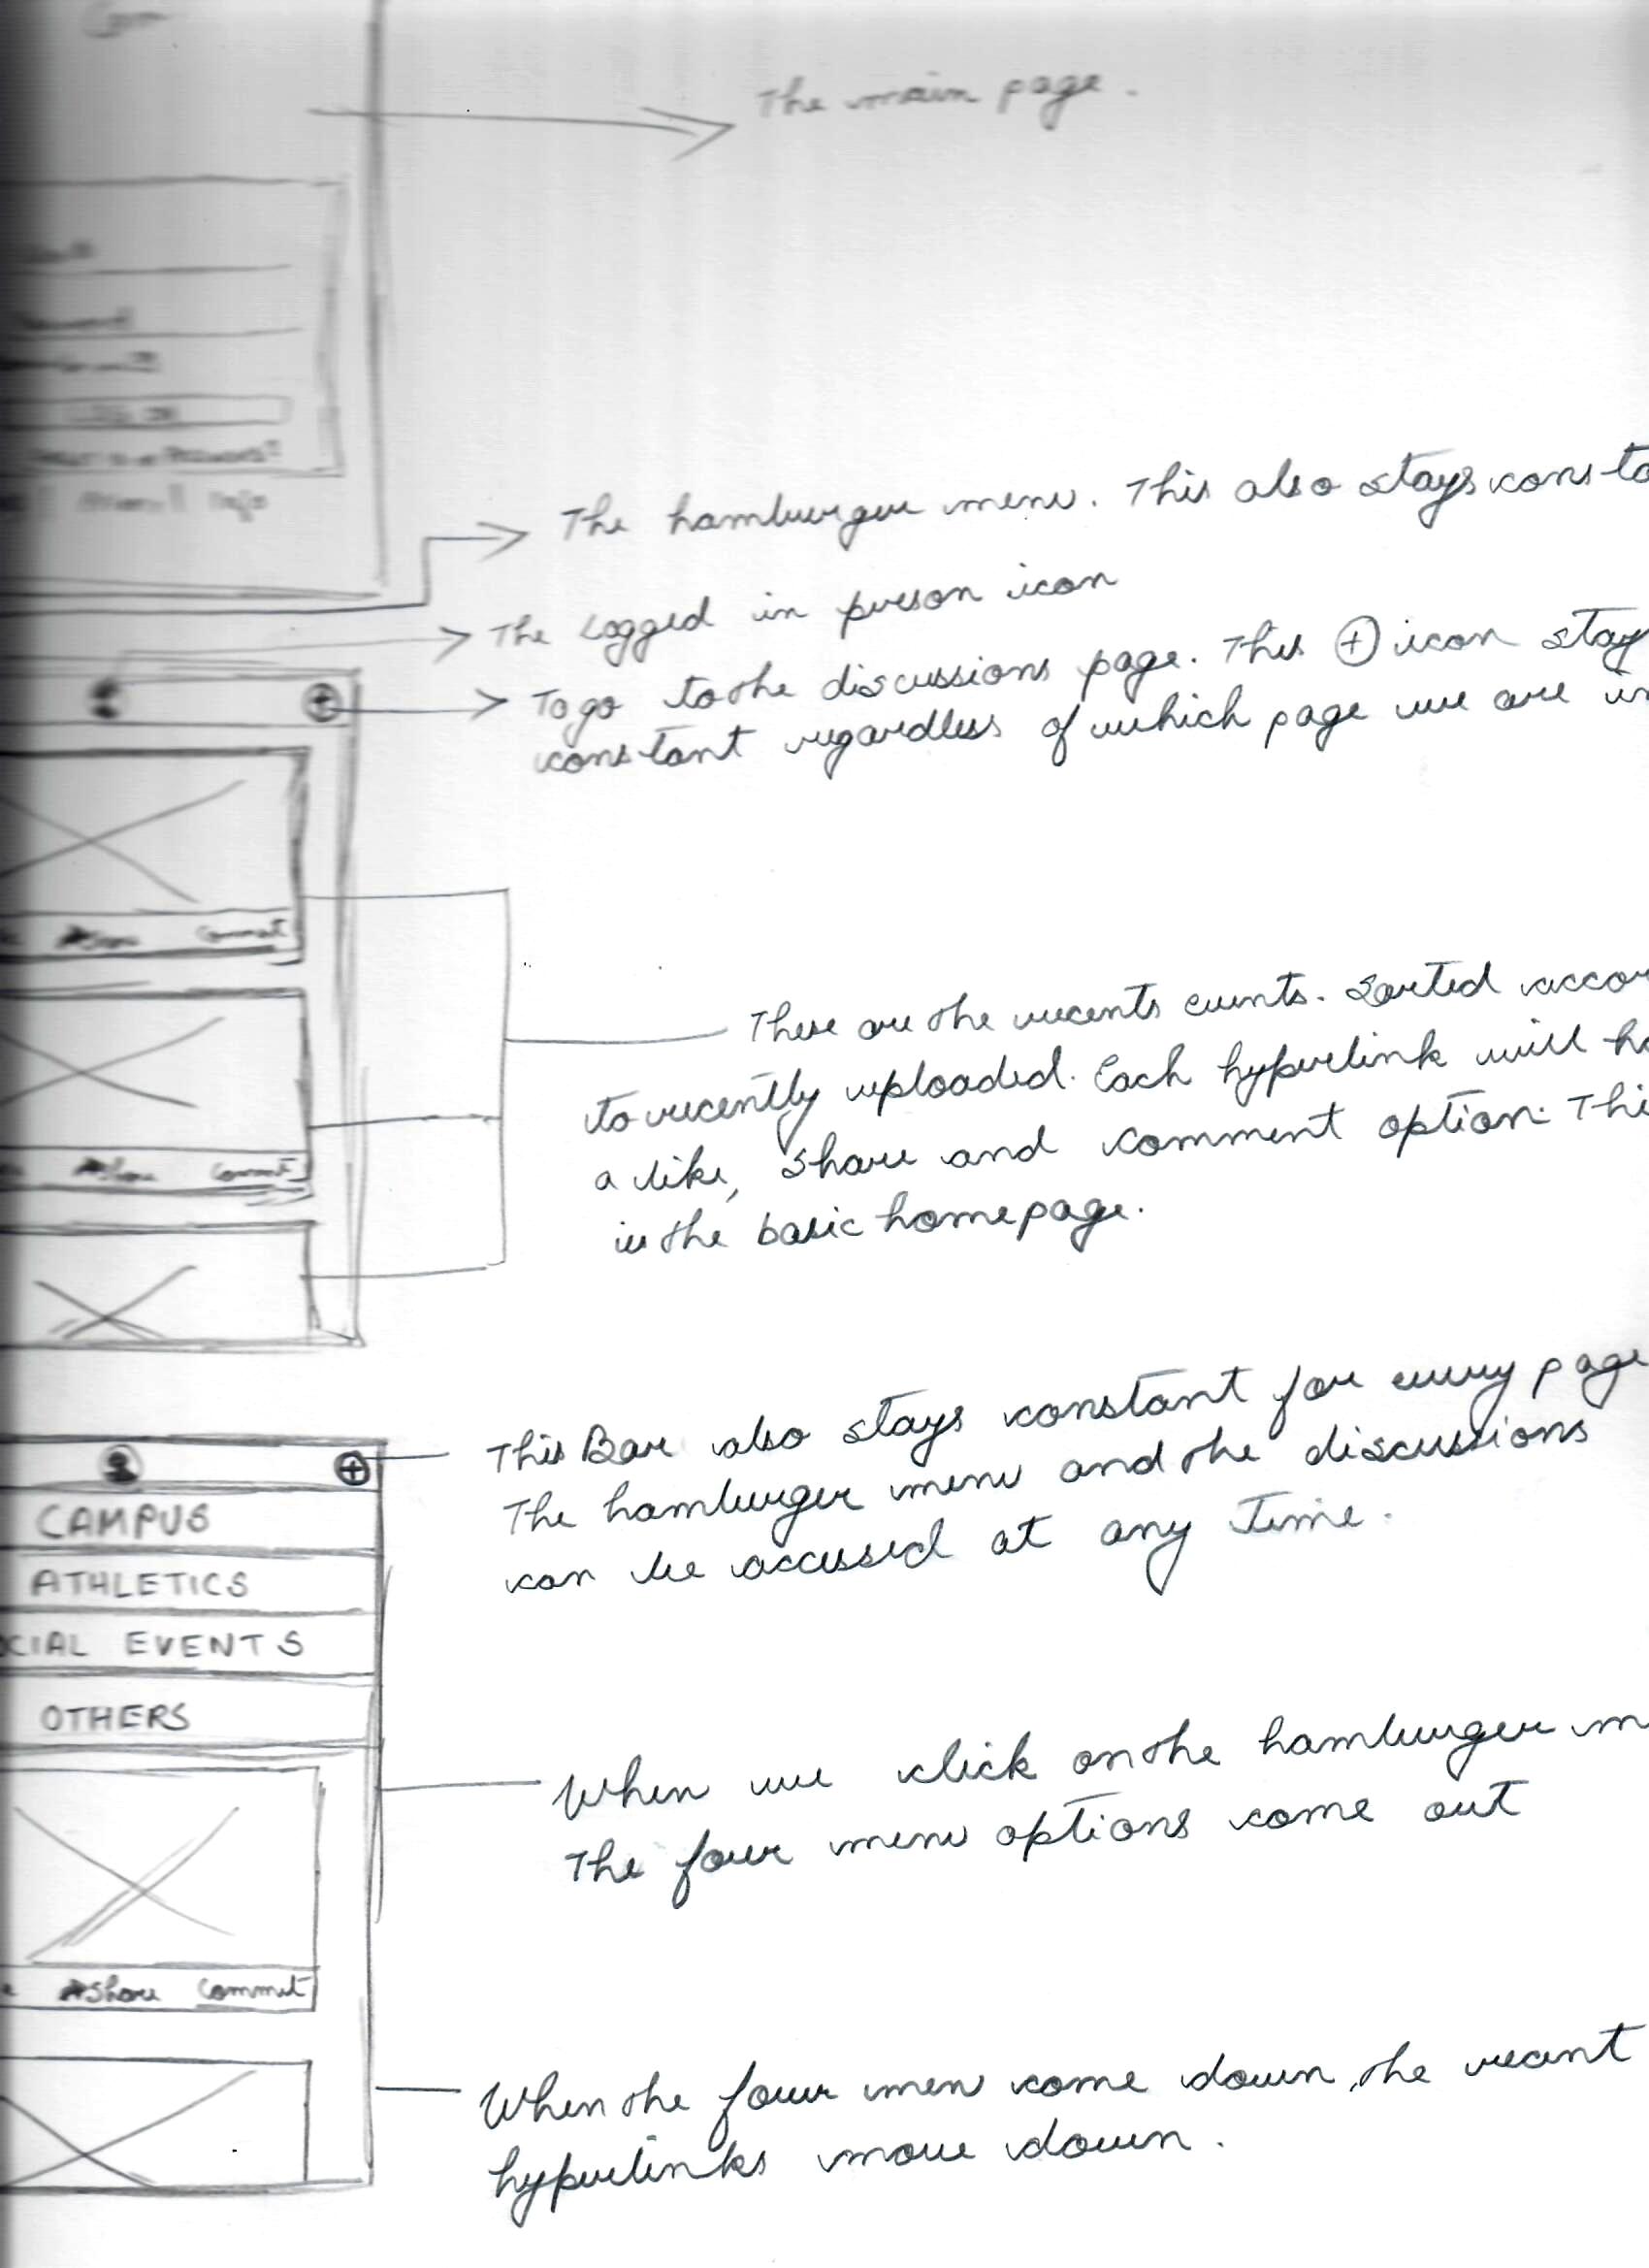 The main page.
LOG IN
Password?
Info
The hamburger menu. This also stays
The Logged in person icon
To go to the discussions page. This + icon stay
constant regardless of which page we are in
Share Comment
There are the recents events. Sorted
to recently uploaded. Each hyperlink will
a like, Share and comment option. This
in the basic homepage.
Share Comment
This Bar also stays constant for every page
The hamburger menu and the discussions
can be accessed at any Time.
CAMPUS
ATHLETICS
OCIAL EVENTS
OTHERS
When we click on the hamburger m
The four menu options come out
Share Comment
When the four men come down, the recent
hyperlinks move down.